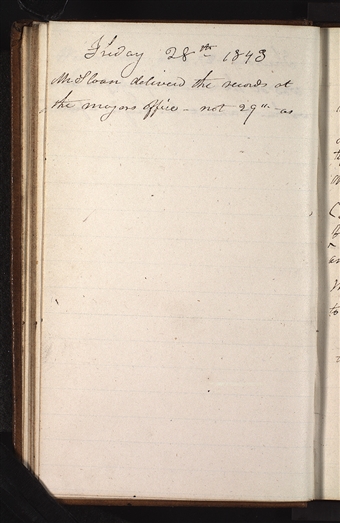 Friday 28th 1843
Mr Sloan delivered the records at
the mayors office - not 29th as